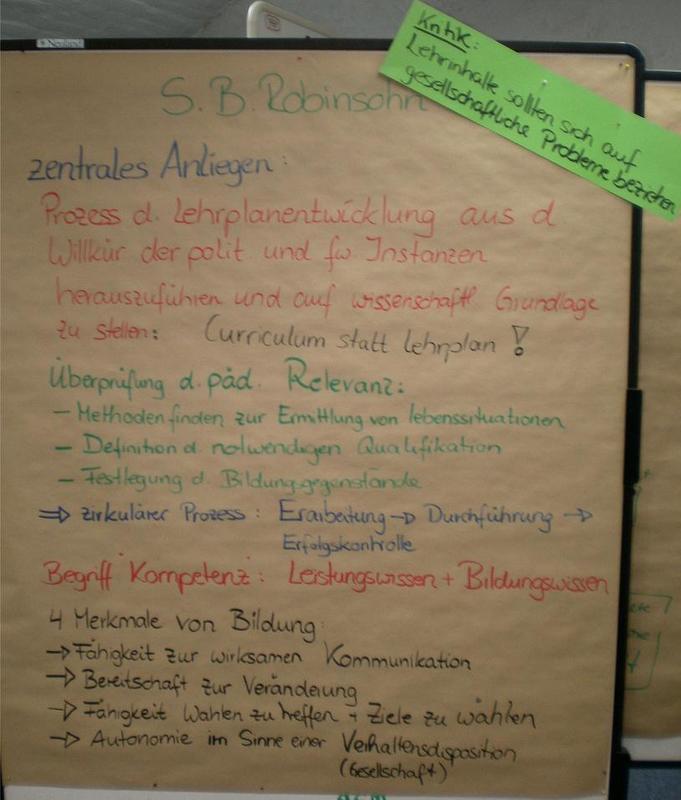 Neuland
Kritik:
Lehrinhalte sollten sich auf
gesellschaftliche Probleme beziehen
S. B. Robinsohn
zentrales Anliegen:
Prozess d. Lehrplanentwicklung aus d
Willkür der polit. und fw. Instanzen
herauszuführen und auf wissenschaftl. Grundlage
zu stellen: Curriculum statt Lehrplan!
Überprüfung d. päd. Relevanz:
- Methoden finden zur Ermittlung von lebenssituationen
- Definition d. notwendigen Qualifikation
- Festlegung d. Bildungsgegenstände
⇒ zirkulärer Prozess: Erarbeitung → Durchführung →
Erfolgskontrolle
Begriff Kompetenz: Leistungswissen + Bildungswissen
4 Merkmale von Bildung:
→ Fähigkeit zur wirksamen Kommunikation
→ Bereitschaft zur Veränderung
→ Fähigkeit Wahlen zu treffen + Ziele zu wählen
→ Autonomie im Sinne einer Verhaltensdisposition
(Gesellschaft)